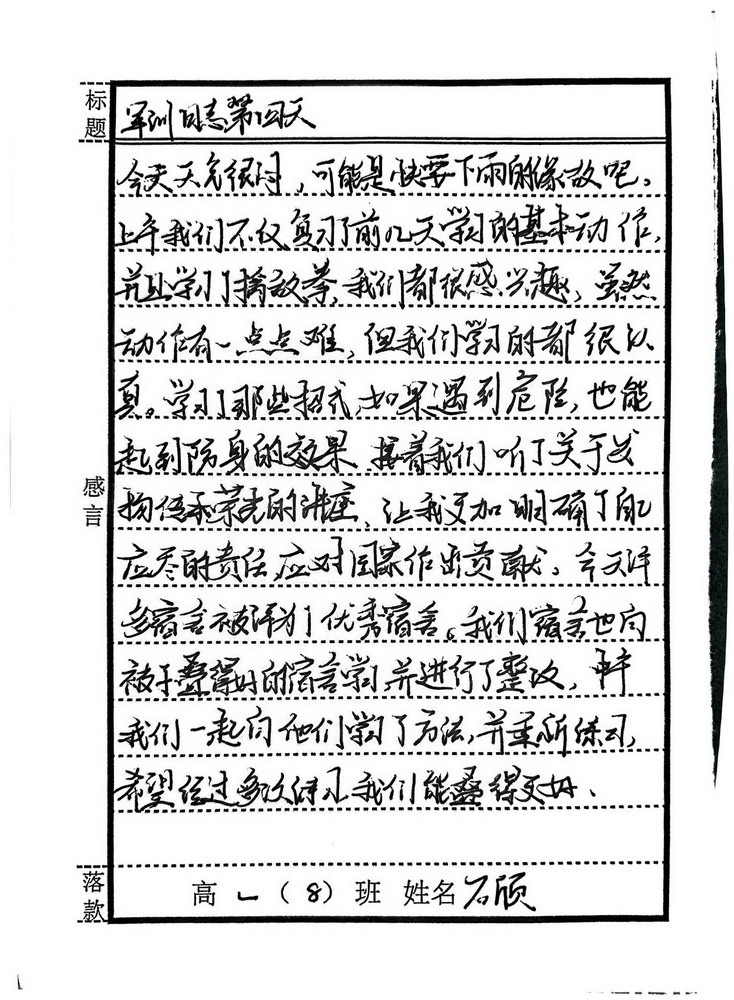 标题
军训日志第四天
今天天气很闷，可能是快要下雨的缘故吧。
上午我们不仅复习了前几天学习的基本动作，
并且学习了擒敌拳，我们都很感兴趣，虽然
动作有一点点难，但我们学习的都很认
真。学习了那些招式，如果遇到危险，也能
起到防身的效果。接着我们听了关于
传承荣光的讲座，让我更加明确了自己
应尽的责任，应对国家作出贡献。今天许
多宿舍被评为了优秀宿舍。我们宿舍也向
被子叠得好的宿舍学习，并进行了整改，
我们一起向他们学习了方法，并重新练习，
希望经过多次练习我们能叠得更好、
感言
落款
高一（8）班 姓名 石颀